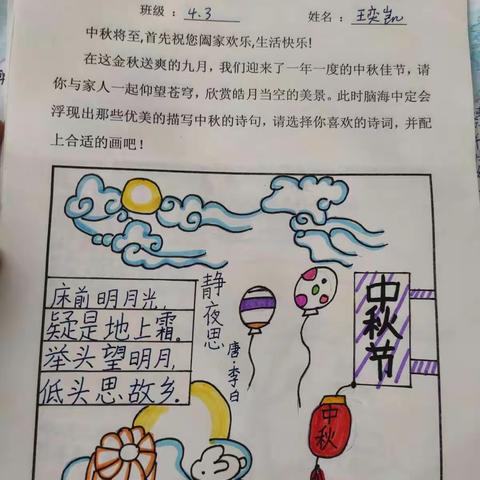 班级：4.3 姓名：王奕凯
中秋将至,首先祝您阖家欢乐,生活快乐!
在这金秋送爽的九月，我们迎来了一年一度的中秋佳节，请
你与家人一起仰望苍穹，欣赏皓月当空的美景。此时脑海中定会
浮现出那些优美的描写中秋的诗句，请选择你喜欢的诗词，并配
上合适的画吧！
静夜思
唐·李白
床前明月光,
疑是地上霜.
举头望明月,
低头思故乡.
中秋节
中秋